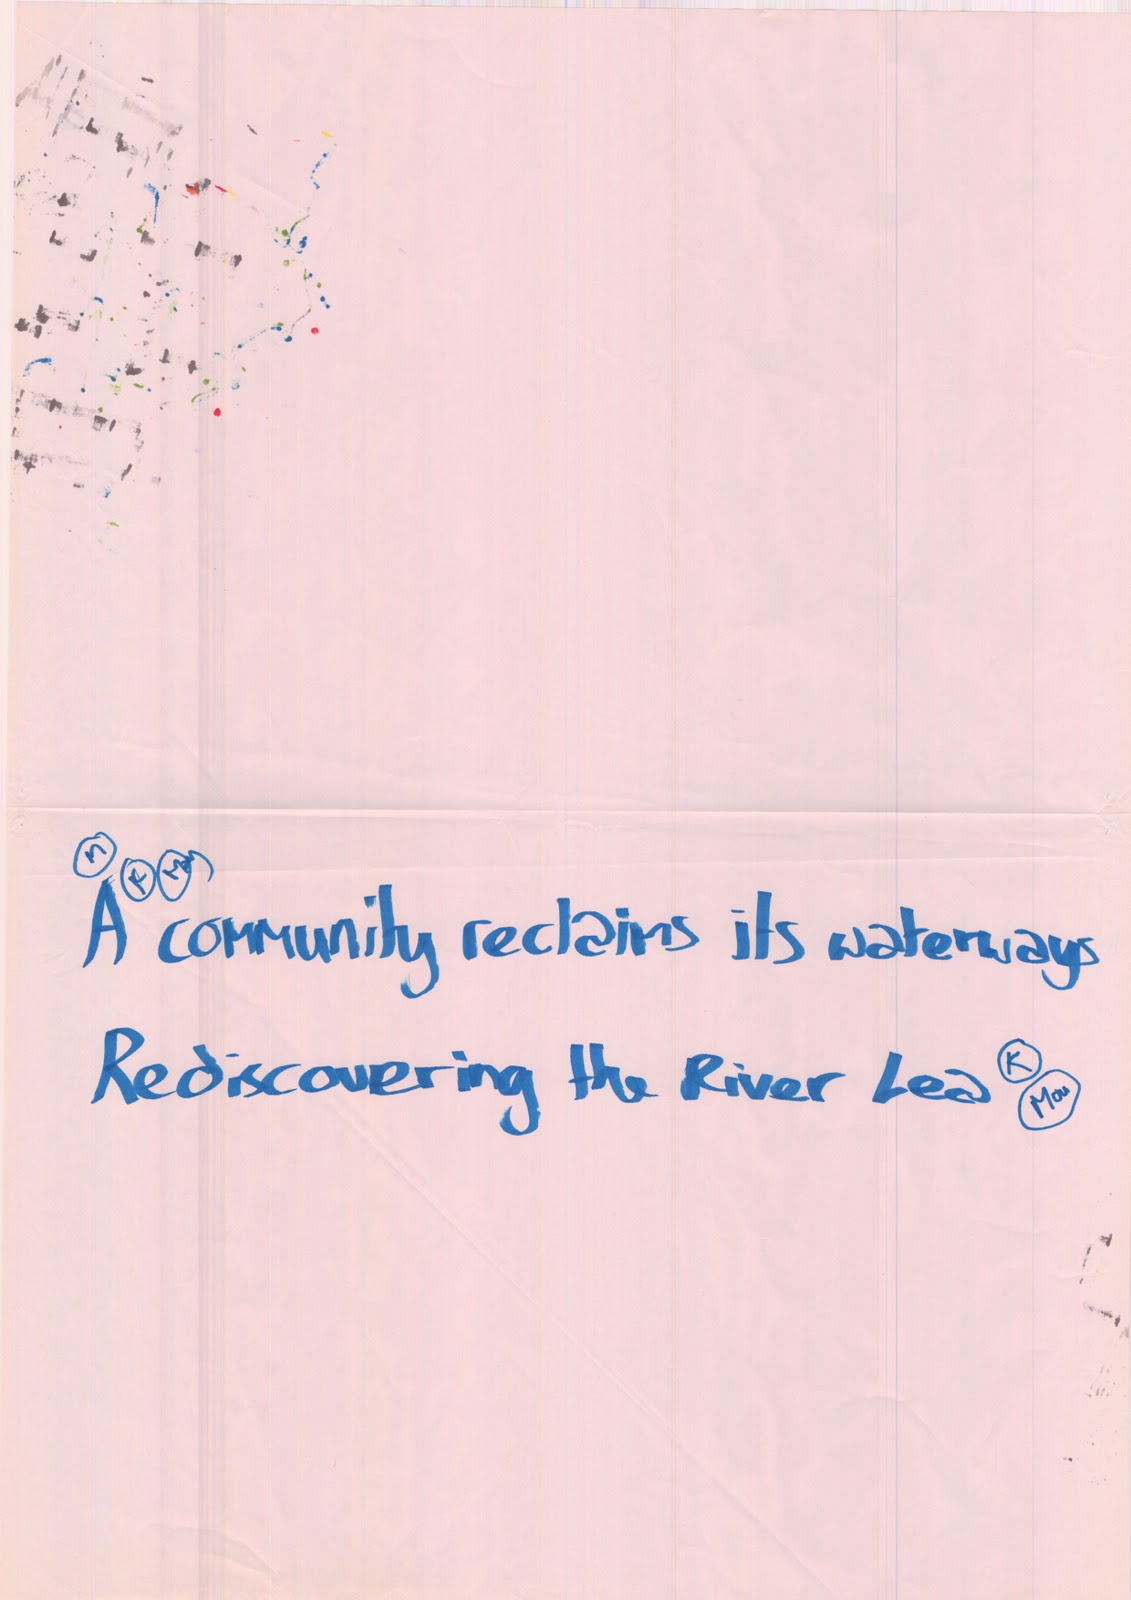 M K Mou
A community reclaims its waterways
Rediscovering the River Lea K
Mou